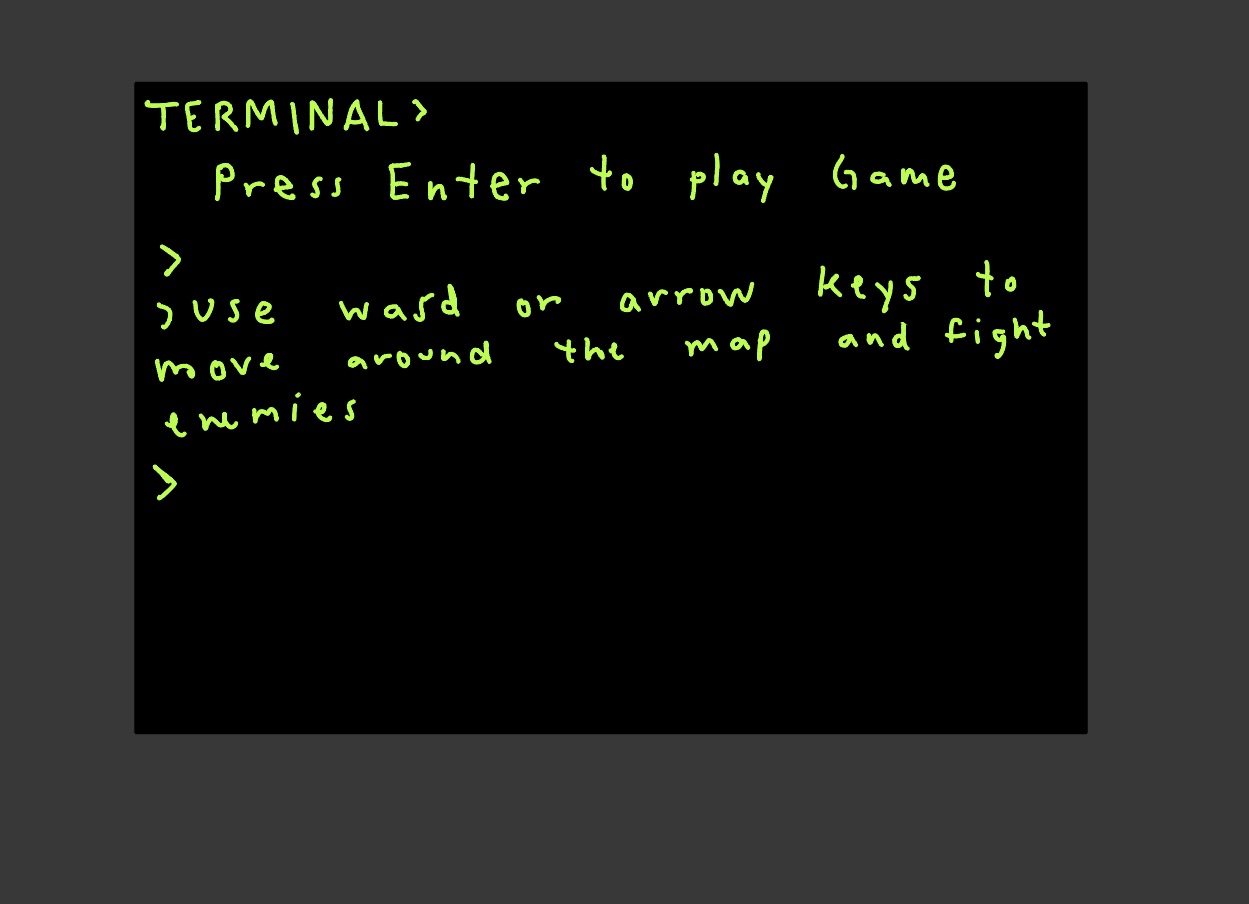 TERMINAL>
Press Enter to play Game
>
>Use wasd or arrow keys to
move around the map and fight
enemies
>